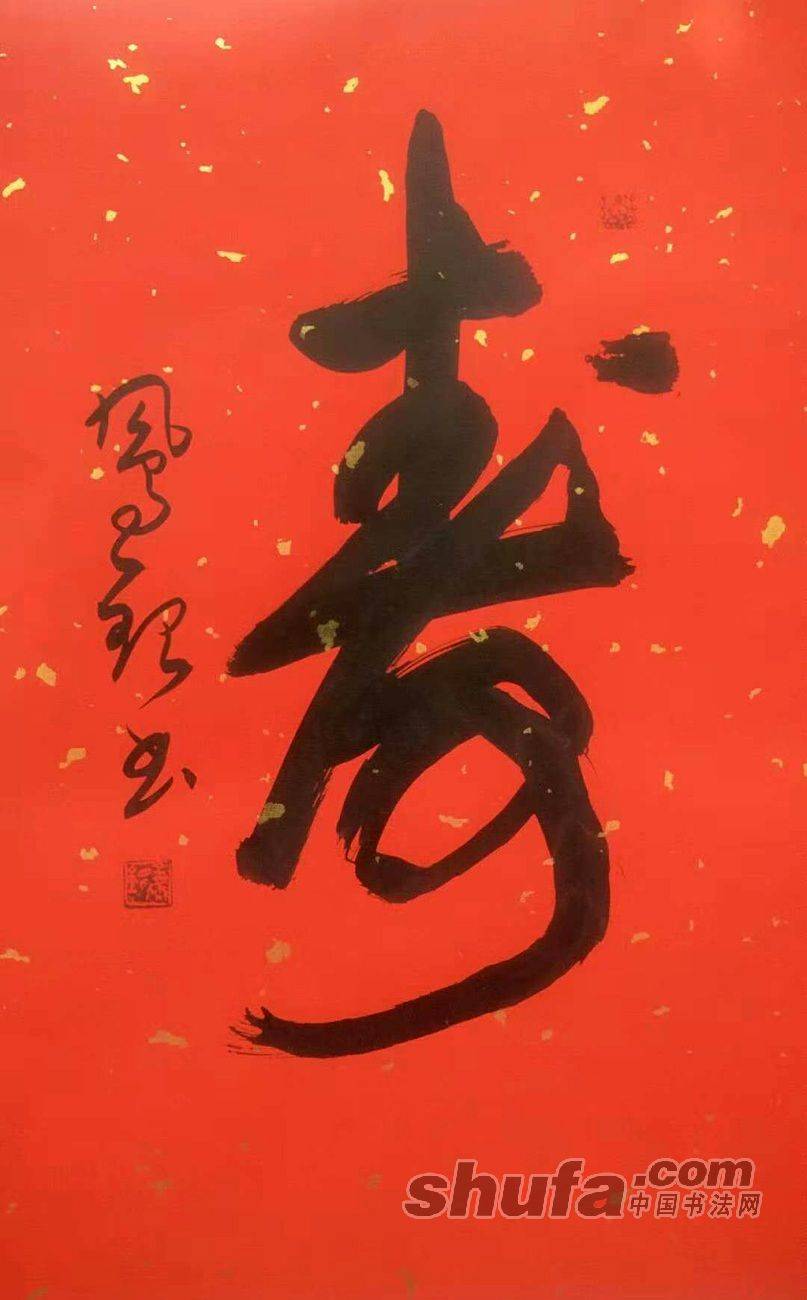 寿
鳳琴书
shufa.com
中国书法网